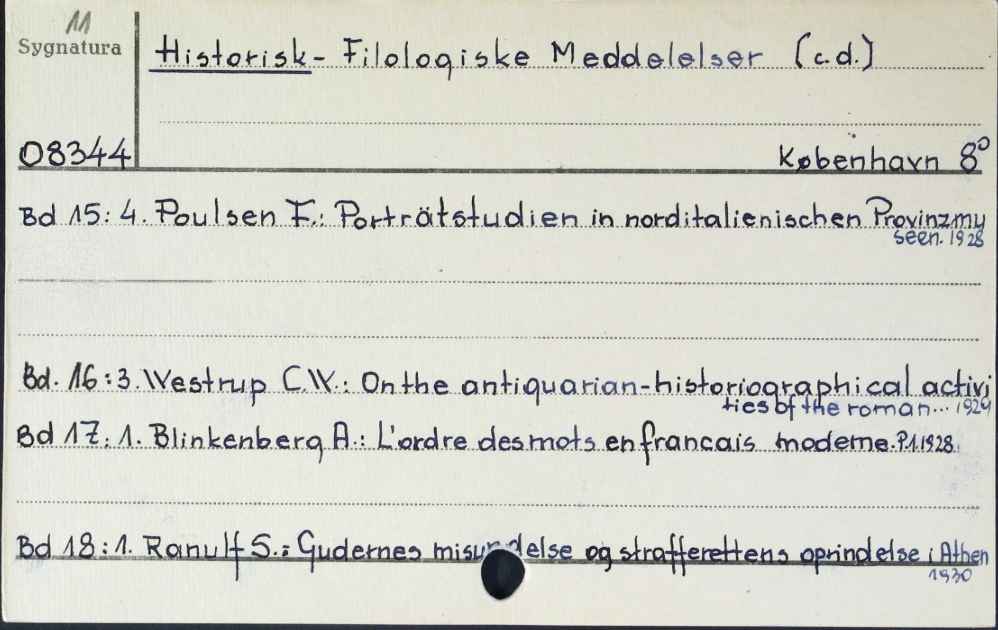 11
Sygnatura
Historisk-Filologiske Meddelelser (c.d.)
08344
København 8°
Bd 15: 4. Poulsen F.: Porträtstudien in norditalienischen Provinzmu
seen. 1928
Bd. 16:3. Westrup C.W.: On the antiquarian-historiographical activi
ties of the roman... 1929
Bd 17: 1. Blinkenberg A.: L'ordre des mots en francais moderne. P.1. 1928.
Bd 18:1. Ranulf S.: Gudernes misundelse og strafferettens oprindelse i Athen
1930